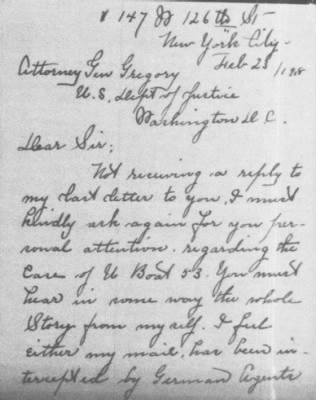 147 W 126th St
New York City-
Feb 25 /1918
Attorney Gen Gregory
U.S. Dept of Justice
Washington D C.
Dear Sir;
Not receiving a reply to
my last letter to you, I must
kindly ask again for you per-
sonal attention. regarding the
Case of U Boat 53. You must
hear in some way the whole
Story from my self. I feel
either my mail, has been in-
tercepted by German Agents